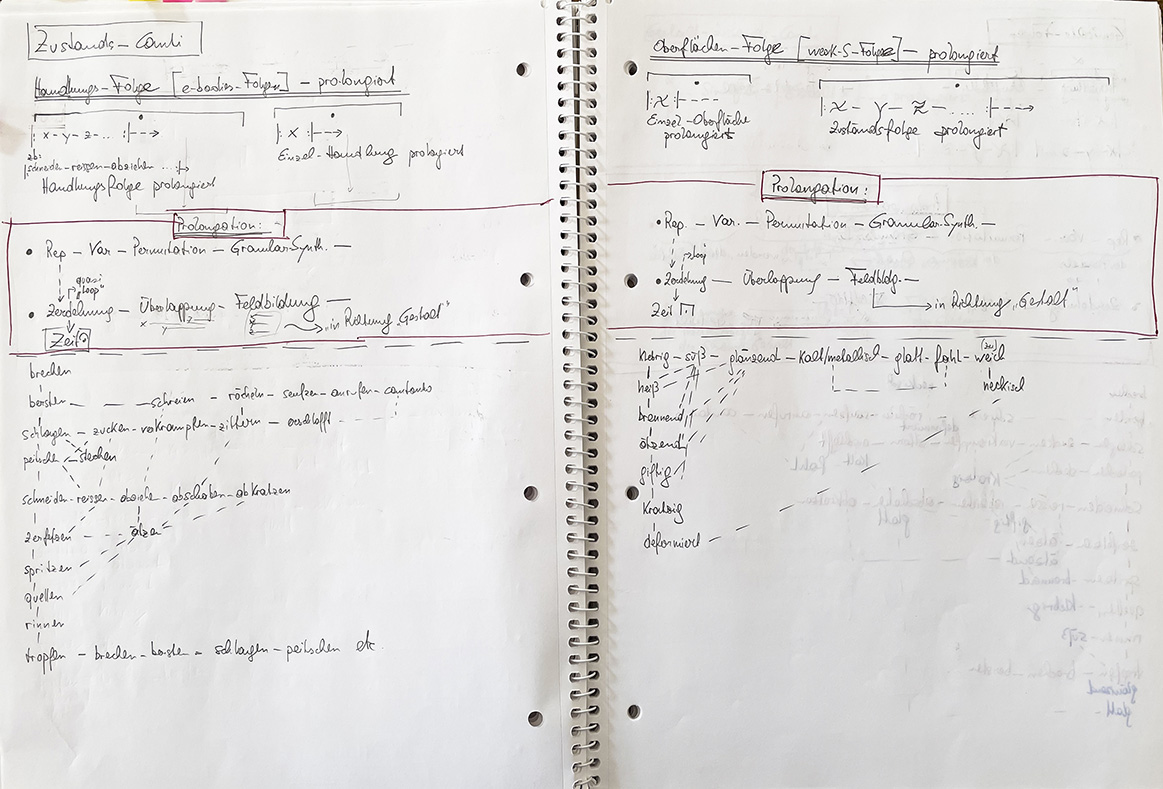 Zustands-Canti
Handlungs-Folge [e-bodies-Folgen] - prolongiert
|: x - y - z - ... :|-->
zB:
|: schneiden - reissen - abziehen ... :|->
Handlungsfolge prolongiert
|: x :|-->
Einzel-Handlung prolongiert
Prolongation:
• Rep - Var - Permutation - Granular.Synth. -
quasi
"loop"
• Zerdehnung - Überlappung - Feldbildung -
x y z
x
y
z
"in Richtung „Gestalt“
Zeit
brechen
bersten - - - schreien - röcheln - seufzen - anrufen - cantando
schlagen - zucken - verkrampfen - zittern - erschlafft
peitschen - stechen
schneiden - reissen - abziehen - abschaben - abkratzen
zerfetzen - - - ätzen
spritzen
quellen
rinnen
tropfen - brechen - bersten - schlagen - peitschen etc.
Oberflächen-Folge [work-S-Folgen] - prolongiert
|: x :|----
Einzel-Oberfläche
prolongiert
|: x - y - z - .... :|--->
Zustandsfolge prolongiert
Prolongation:
• Rep. - Var. - Permutation - Granular.Synth. -
loop
• Zerdehnung - Überlappung - Feldbldg. -
Zeit
→ in Richtung „Gestalt“
klebrig - süß - glänzend - kalt/metallisch - glatt - fahl - weich
heiß
neckisch
brennend
ätzend
giftig
kratzig
deformiert